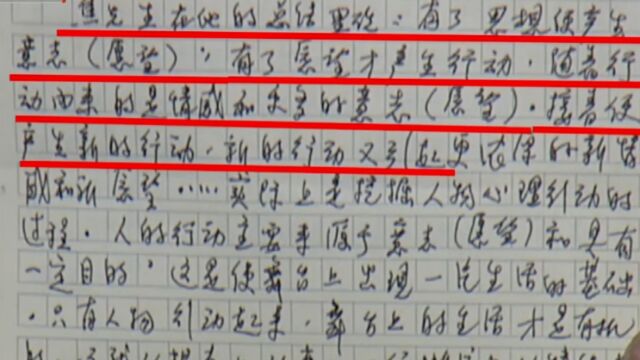 焦先生在他的总结里说：有了思想便产生
意志（愿望）；有了愿望才产生行动。随着行
动而来的是情感和更多的意志（愿望）。接着便
产生新的行动，新的行动又引起更浓厚的新情
感和新愿望……实际上是挖掘人物心理行动的
过程。人的行动主要来源于意志（愿望）和具有
一定目的，这是使舞台上出现一片生活的基础
。只有人物行动起来，舞台上的生活才是有机